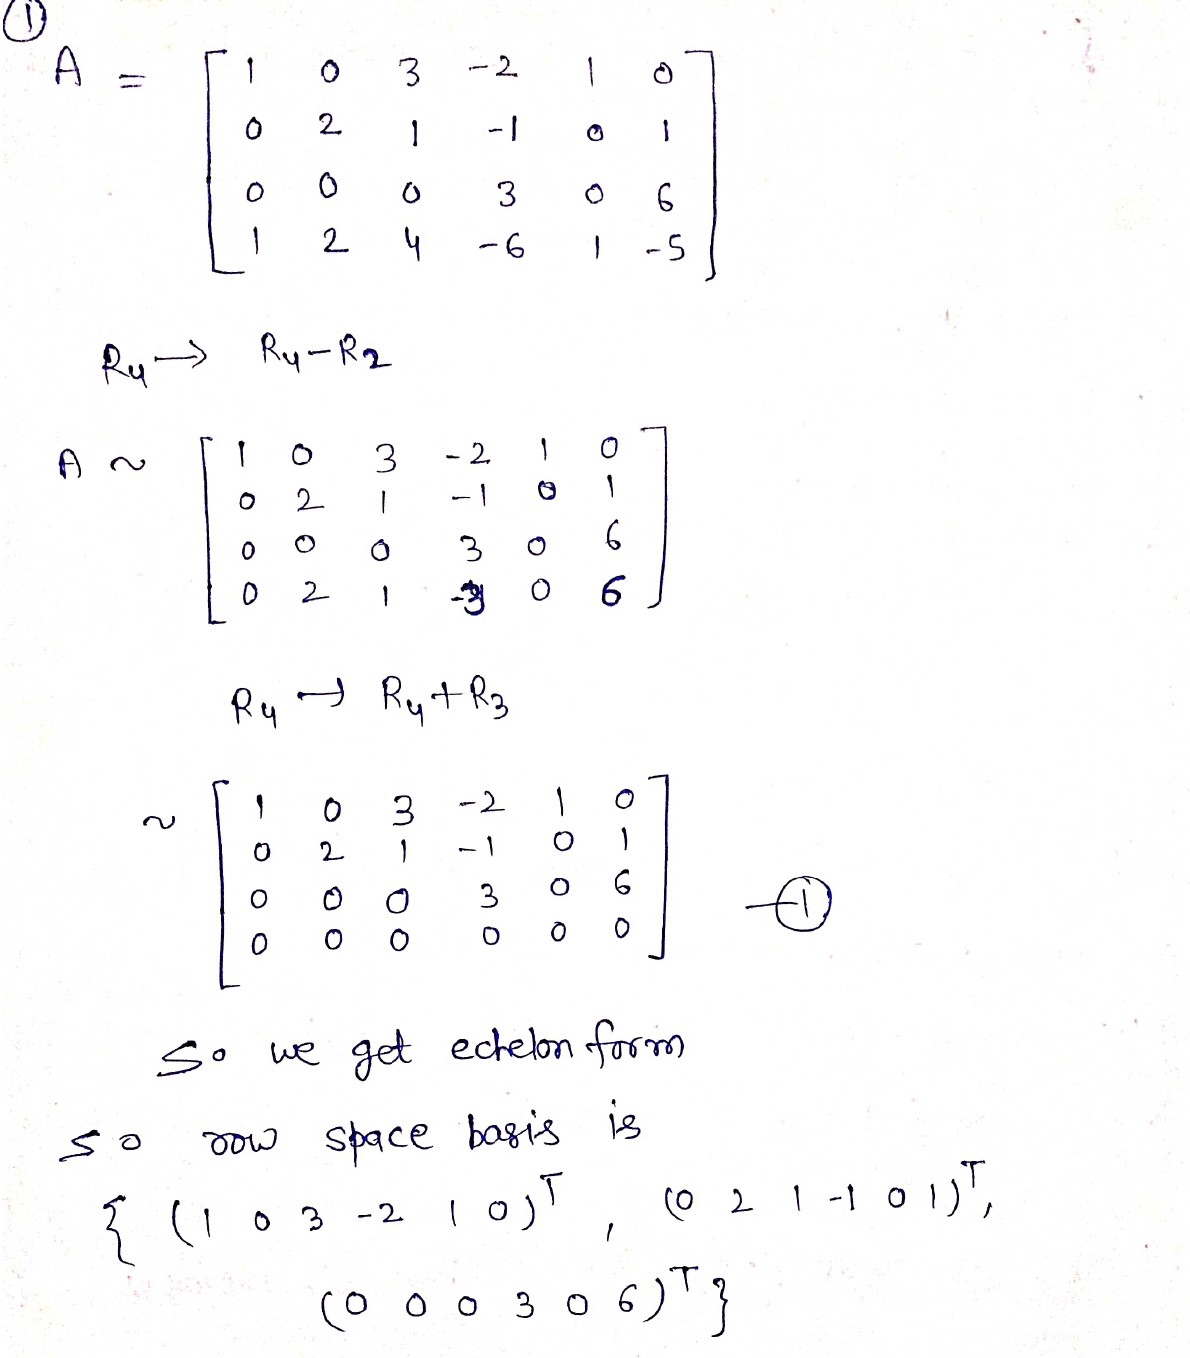 ①
A = [ 1 0 3 -2 1 0
0 2 1 -1 0 1
0 0 0 3 0 6
1 2 4 -6 1 -5 ]
R4 → R4 - R2
A ~ [ 1 0 3 -2 1 0
0 2 1 -1 0 1
0 0 0 3 0 6
0 2 1 0 6 ]
R4 → R4 + R3
~ [ 1 0 3 -2 1 0
0 2 1 -1 0 1
0 0 0 3 0 6 — ①
0 0 0 0 0 0 ]
So we get echelon form
so row space basis is
{ (1 0 3 -2 1 0)^T , (0 2 1 -1 0 1)^T,
(0 0 0 3 0 6)^T }